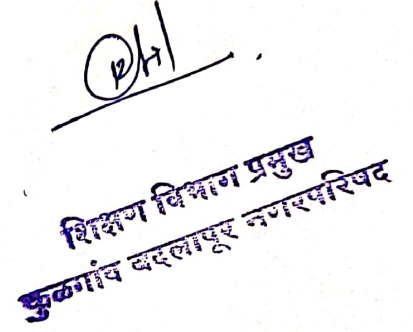 शिक्षण विभाग प्रमुख
कुळगांव बदलापूर नगरपरिषद